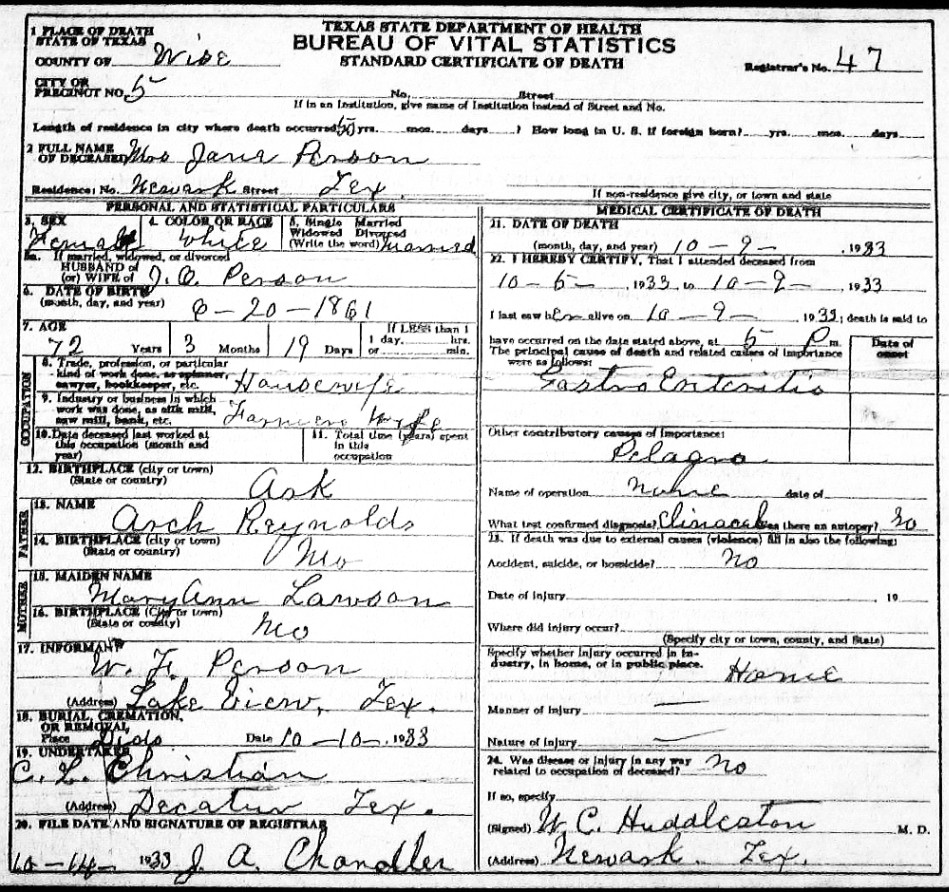 TEXAS STATE DEPARTMENT OF HEALTH
BUREAU OF VITAL STATISTICS
STANDARD CERTIFICATE OF DEATH
1 PLACE OF DEATH
STATE OF TEXAS
COUNTY OF Wise
Registrar's No. 47
CITY OR
PRECINCT NO. 5 No. Street
If in an Institution, give name of Institution instead of Street and No.
Length of residence in city where death occurred yrs. mos. days ? How long in U. S. if foreign born? yrs. mos. days
2 FULL NAME
OF DECEASED Mrs Jane Person
Residence: No. Newark Street Tex.
If non-residence give city, or town and state
PERSONAL AND STATISTICAL PARTICULARS
3. SEX
Female
4. COLOR OR RACE
White
5. Single Married
Widowed Divorced
(Write the word) Married
5a. If married, widowed, or divorced
HUSBAND of
(or) WIFE of Person
6. DATE OF BIRTH
(month, day, and year) 6-20-1861
7. AGE
72 Years 3 Months 19 Days
If LESS than 1
1 day, hrs.
or min.
OCCUPATION
8. Trade, profession, or particular
kind of work done, as spinner,
sawyer, bookkeeper, etc. Housewife
9. Industry or business in which
work was done, as silk mill,
saw mill, bank, etc. Farmers Wife
10. Date deceased last worked at
this occupation (month and
year)
11. Total time (years) spent
in this
occupation
12. BIRTHPLACE (city or town)
(State or country) Ark
FATHER
13. NAME
Arch Reynolds
14. BIRTHPLACE (city or town)
(State or country) Mo
MOTHER
15. MAIDEN NAME
Mary Ann Lawson
16. BIRTHPLACE (City or town)
(State or country) Mo
17. INFORMANT
W. F. Person
(Address) Lake View, Tex.
18. BURIAL, CREMATION,
OR REMOVAL
Place Dido Date 10-10-1933
19. UNDERTAKER
C. L. Christian
(Address) Decatur Tex.
20. FILE DATE AND SIGNATURE OF REGISTRAR
10-14- 1933 J. A. Chandler
MEDICAL CERTIFICATE OF DEATH
21. DATE OF DEATH
(month, day, and year) 10-9-, 1933
22. I HEREBY CERTIFY, That I attended deceased from
10-5- 1933, to 10-9- 1933
I last saw her alive on 10-9- 1933; death is said to
have occurred on the date stated above, at 5 P m.
The principal cause of death and related causes of importance
were as follows:
Date of
onset
Gastro Enteritis
Other contributory causes of importance:
Pelagra
Name of operation None date of
What test confirmed diagnosis? Clinacal Was there an autopsy? no
23. If death was due to external causes (violence) fill in also the following:
Accident, suicide, or homicide? No
Date of injury 19
Where did injury occur?
(Specify city or town, county, and State)
Specify whether injury occurred in in-
dustry, in home, or in public place. Home
Manner of injury —
Nature of injury —
24. Was disease or injury in any way
related to occupation of deceased? No
If so, specify
(Signed) W. C. Huddleston M. D.
(Address) Newark Tex.